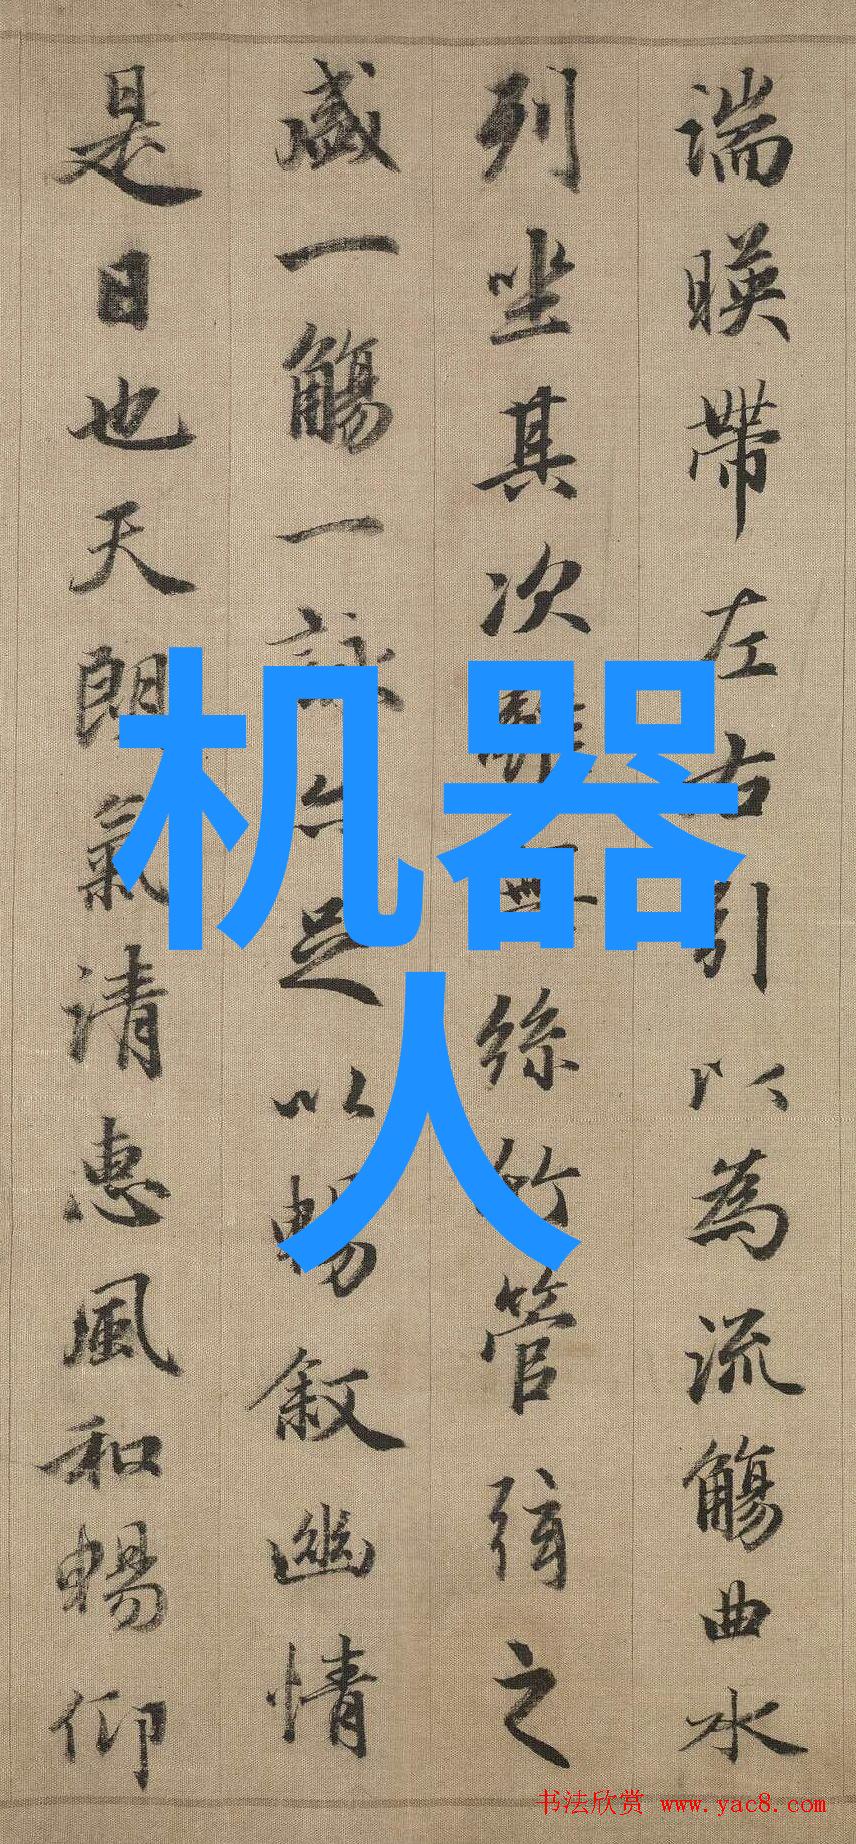 湍暎帶左右引以為流觴曲水
列坐其次雖無絲竹管弦之
盛一觴一詠亦足以暢叙幽情
是日也天朗氣清惠風和暢仰
机器
人
书法欣赏 www.yac8.com